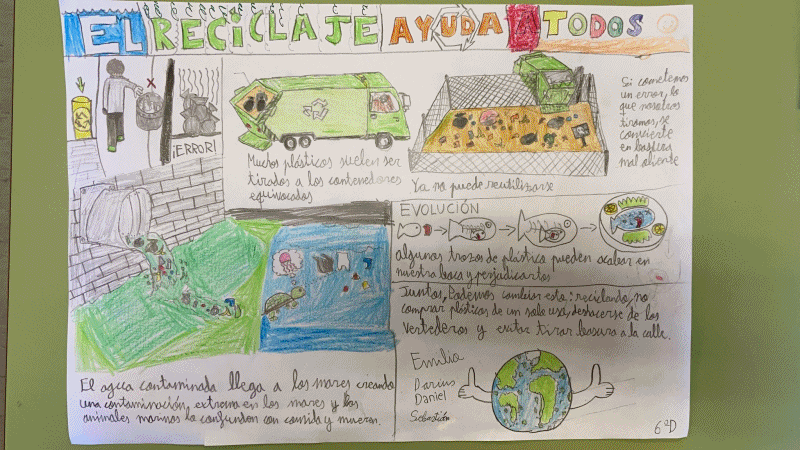 EL RECICLAJE AYUDA A TODOS
¡ERROR!
Muchos plásticos suelen ser
tirados a los contenedores
equivocados
Ya no puede reutilizarse
Si cometemos
un error, lo
que nosotros
tiramos, se
convierte
en basura
mal oliente
EVOLUCIÓN
algunos trozos de plástico pueden acabar en
nuestra boca y perjudicarnos
Juntos, Podemos cambiar esto: reciclando, no
comprar plásticos de un solo uso, deshacerse de los
vertederos y evitar tirar basura a la calle.
El agua contaminada llega a los mares creando
una contaminación extrema en los mares y los
animales marinos lo confunden con comida y mueren.
Emilia
Darius
Daniel
Sebastián
6ºD